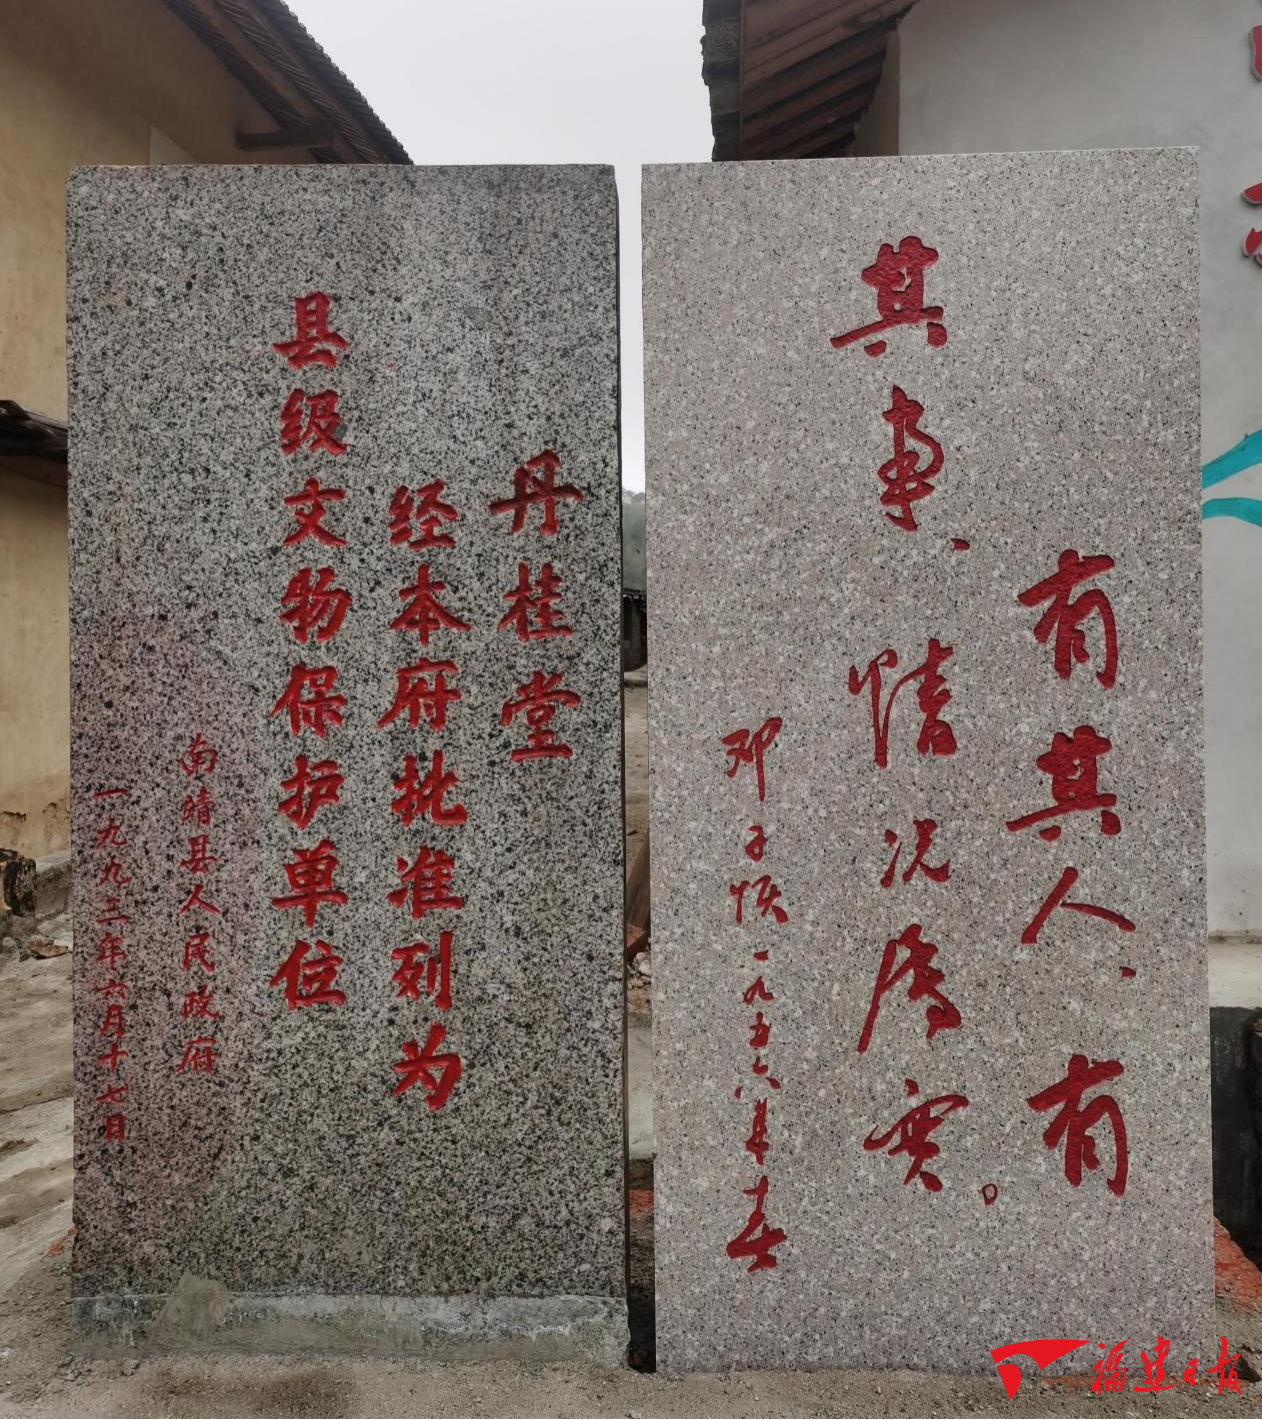 丹桂堂
经本府批准列为
县级文物保护单位
南靖县人民政府
一九九三年六月十七日
有其人、有
其事、情况属实。
邓子恢一九五六年春
福建日报